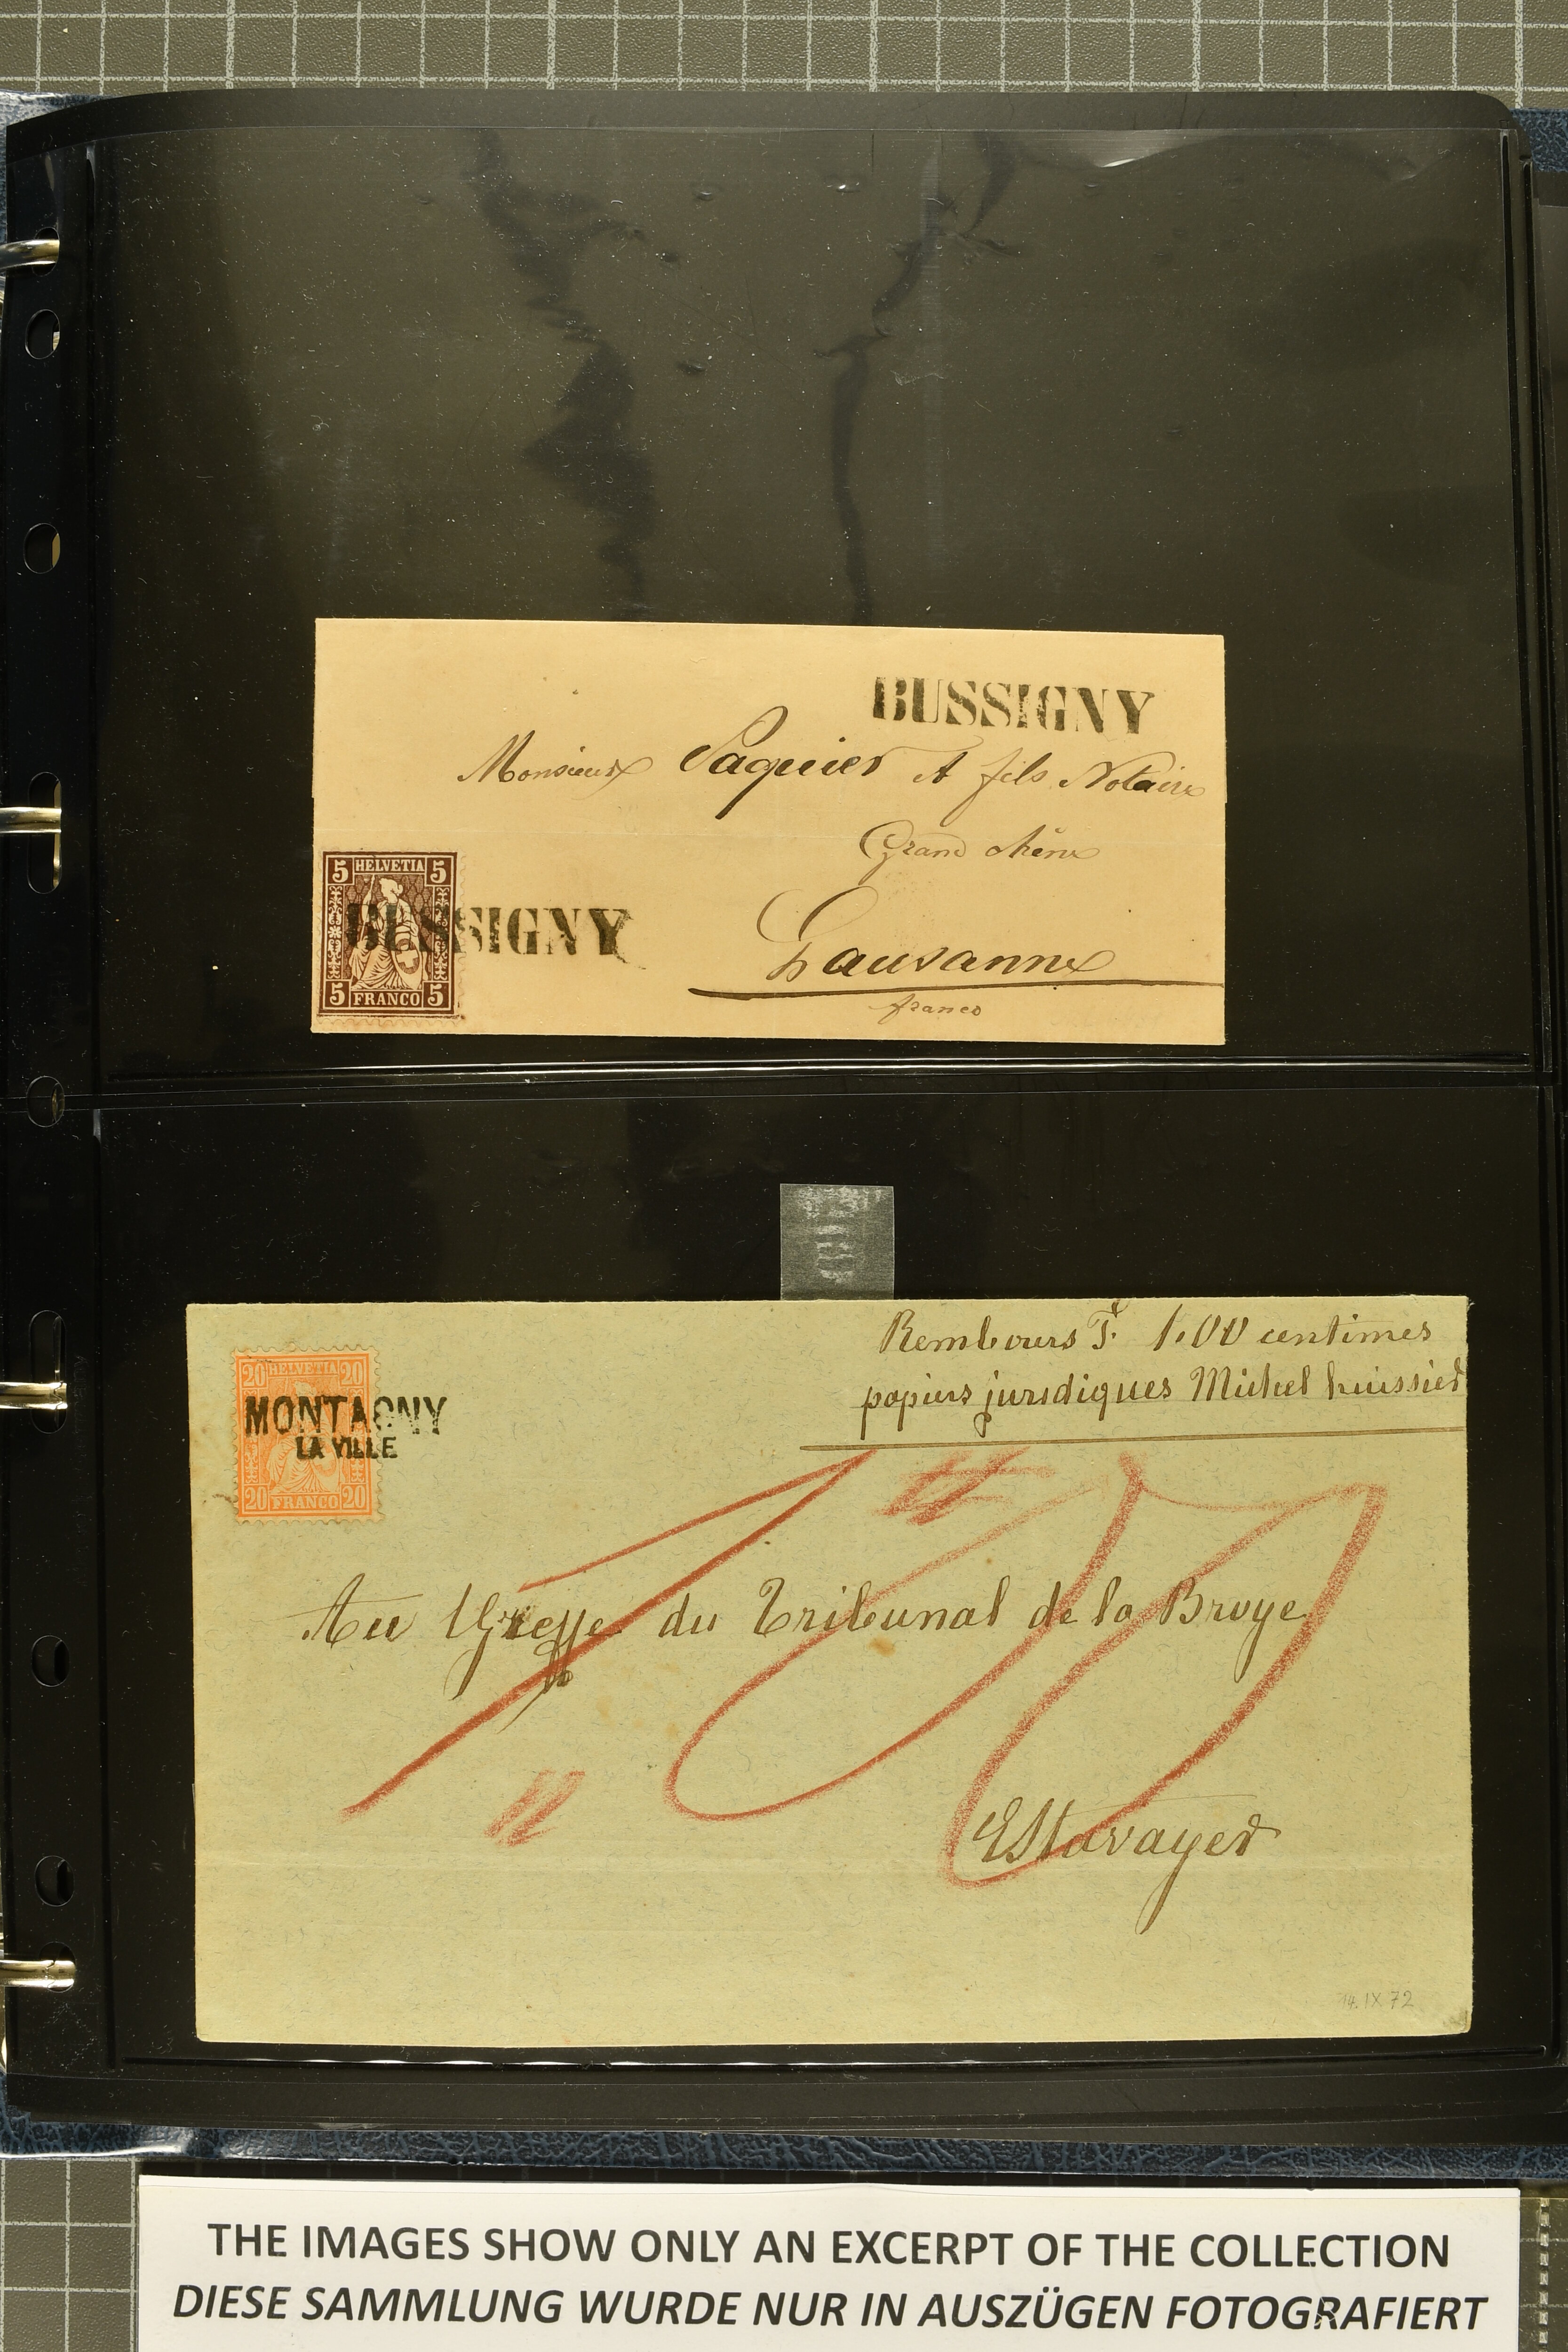 BUSSIGNY
Monsieur Paquier A fils Notaire
Grand Chêne
5 HELVETIA 5
BUSSIGNY
Lausanne
5 FRANCO 5
franco
Rembours F. 1.00 centimes
papiers juridiques Michel huissier
20 HELVETIA 20
MONTAGNY
LA VILLE
20 FRANCO 20
100
Au Greffe du Tribunal de la Broye
Estavayer
14.IX 72
THE IMAGES SHOW ONLY AN EXCERPT OF THE COLLECTION
DIESE SAMMLUNG WURDE NUR IN AUSZÜGEN FOTOGRAFIERT